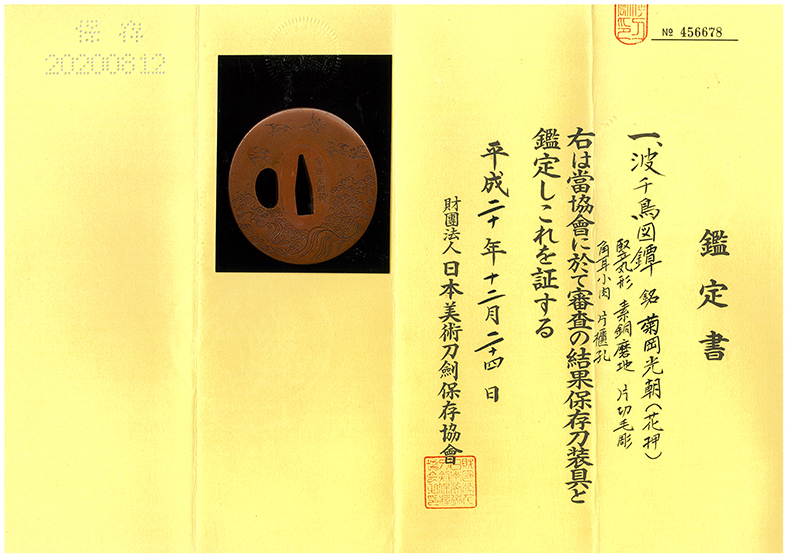 № 456678
鑑定書
一、波千鳥図鐔 銘 菊岡光朝(花押)
竪丸形 素銅磨地 片切毛彫
角耳小肉 片櫃孔
右は當協會に於て審査の結果保存刀装具と
鑑定しこれを証する
平成二十年十二月二十四日
財團法人 日本美術刀劍保存協會
保存
20200812